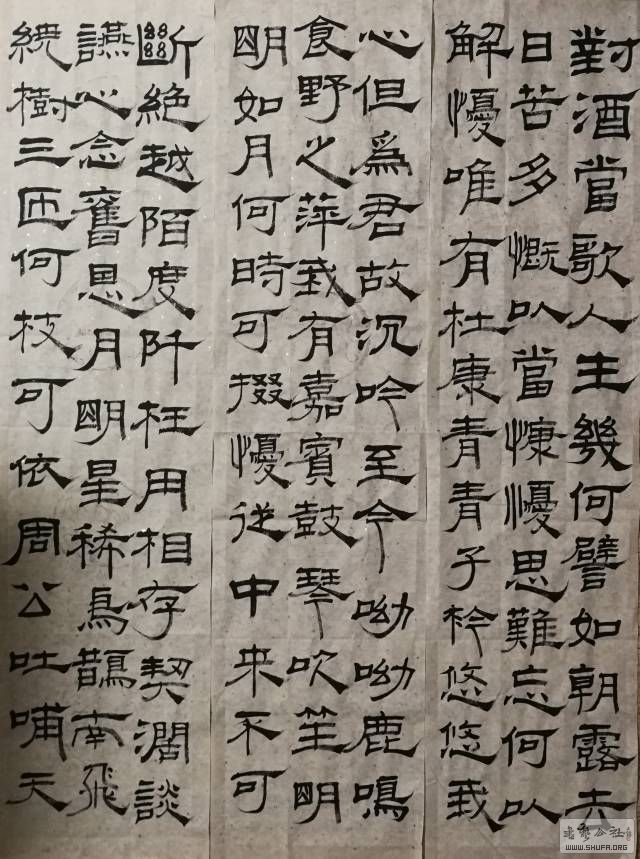 對酒當歌人生幾何譬如朝露去
日苦多慨以當慷懮思難忘何以
解懮唯有杜康青青子衿悠悠我
心但爲君故沉吟至今呦呦鹿鳴
食野之萍我有嘉賓鼓琴吹笙明
明如月何時可掇懮從中来不可
斷絕越陌度阡枉用相存契濶談
讌心念舊恩月明星稀烏鵲南飛
繞樹三匝何枝可依周公吐哺天
WWW.SHUFA.ORG